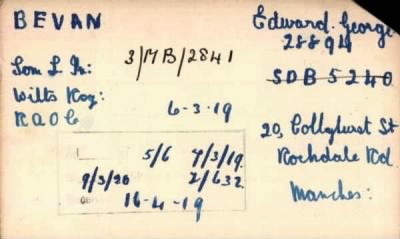 BEVAN
Edward George
28894
3/MB/2841
Som L In:
SDB 5240
Wilts Reg:
6-3-19
R A O C
20, Collyhurst St
Rochdale Rd.
Manches:
5/6 7/3/19.
9/3/20 2/632.
16-4-19